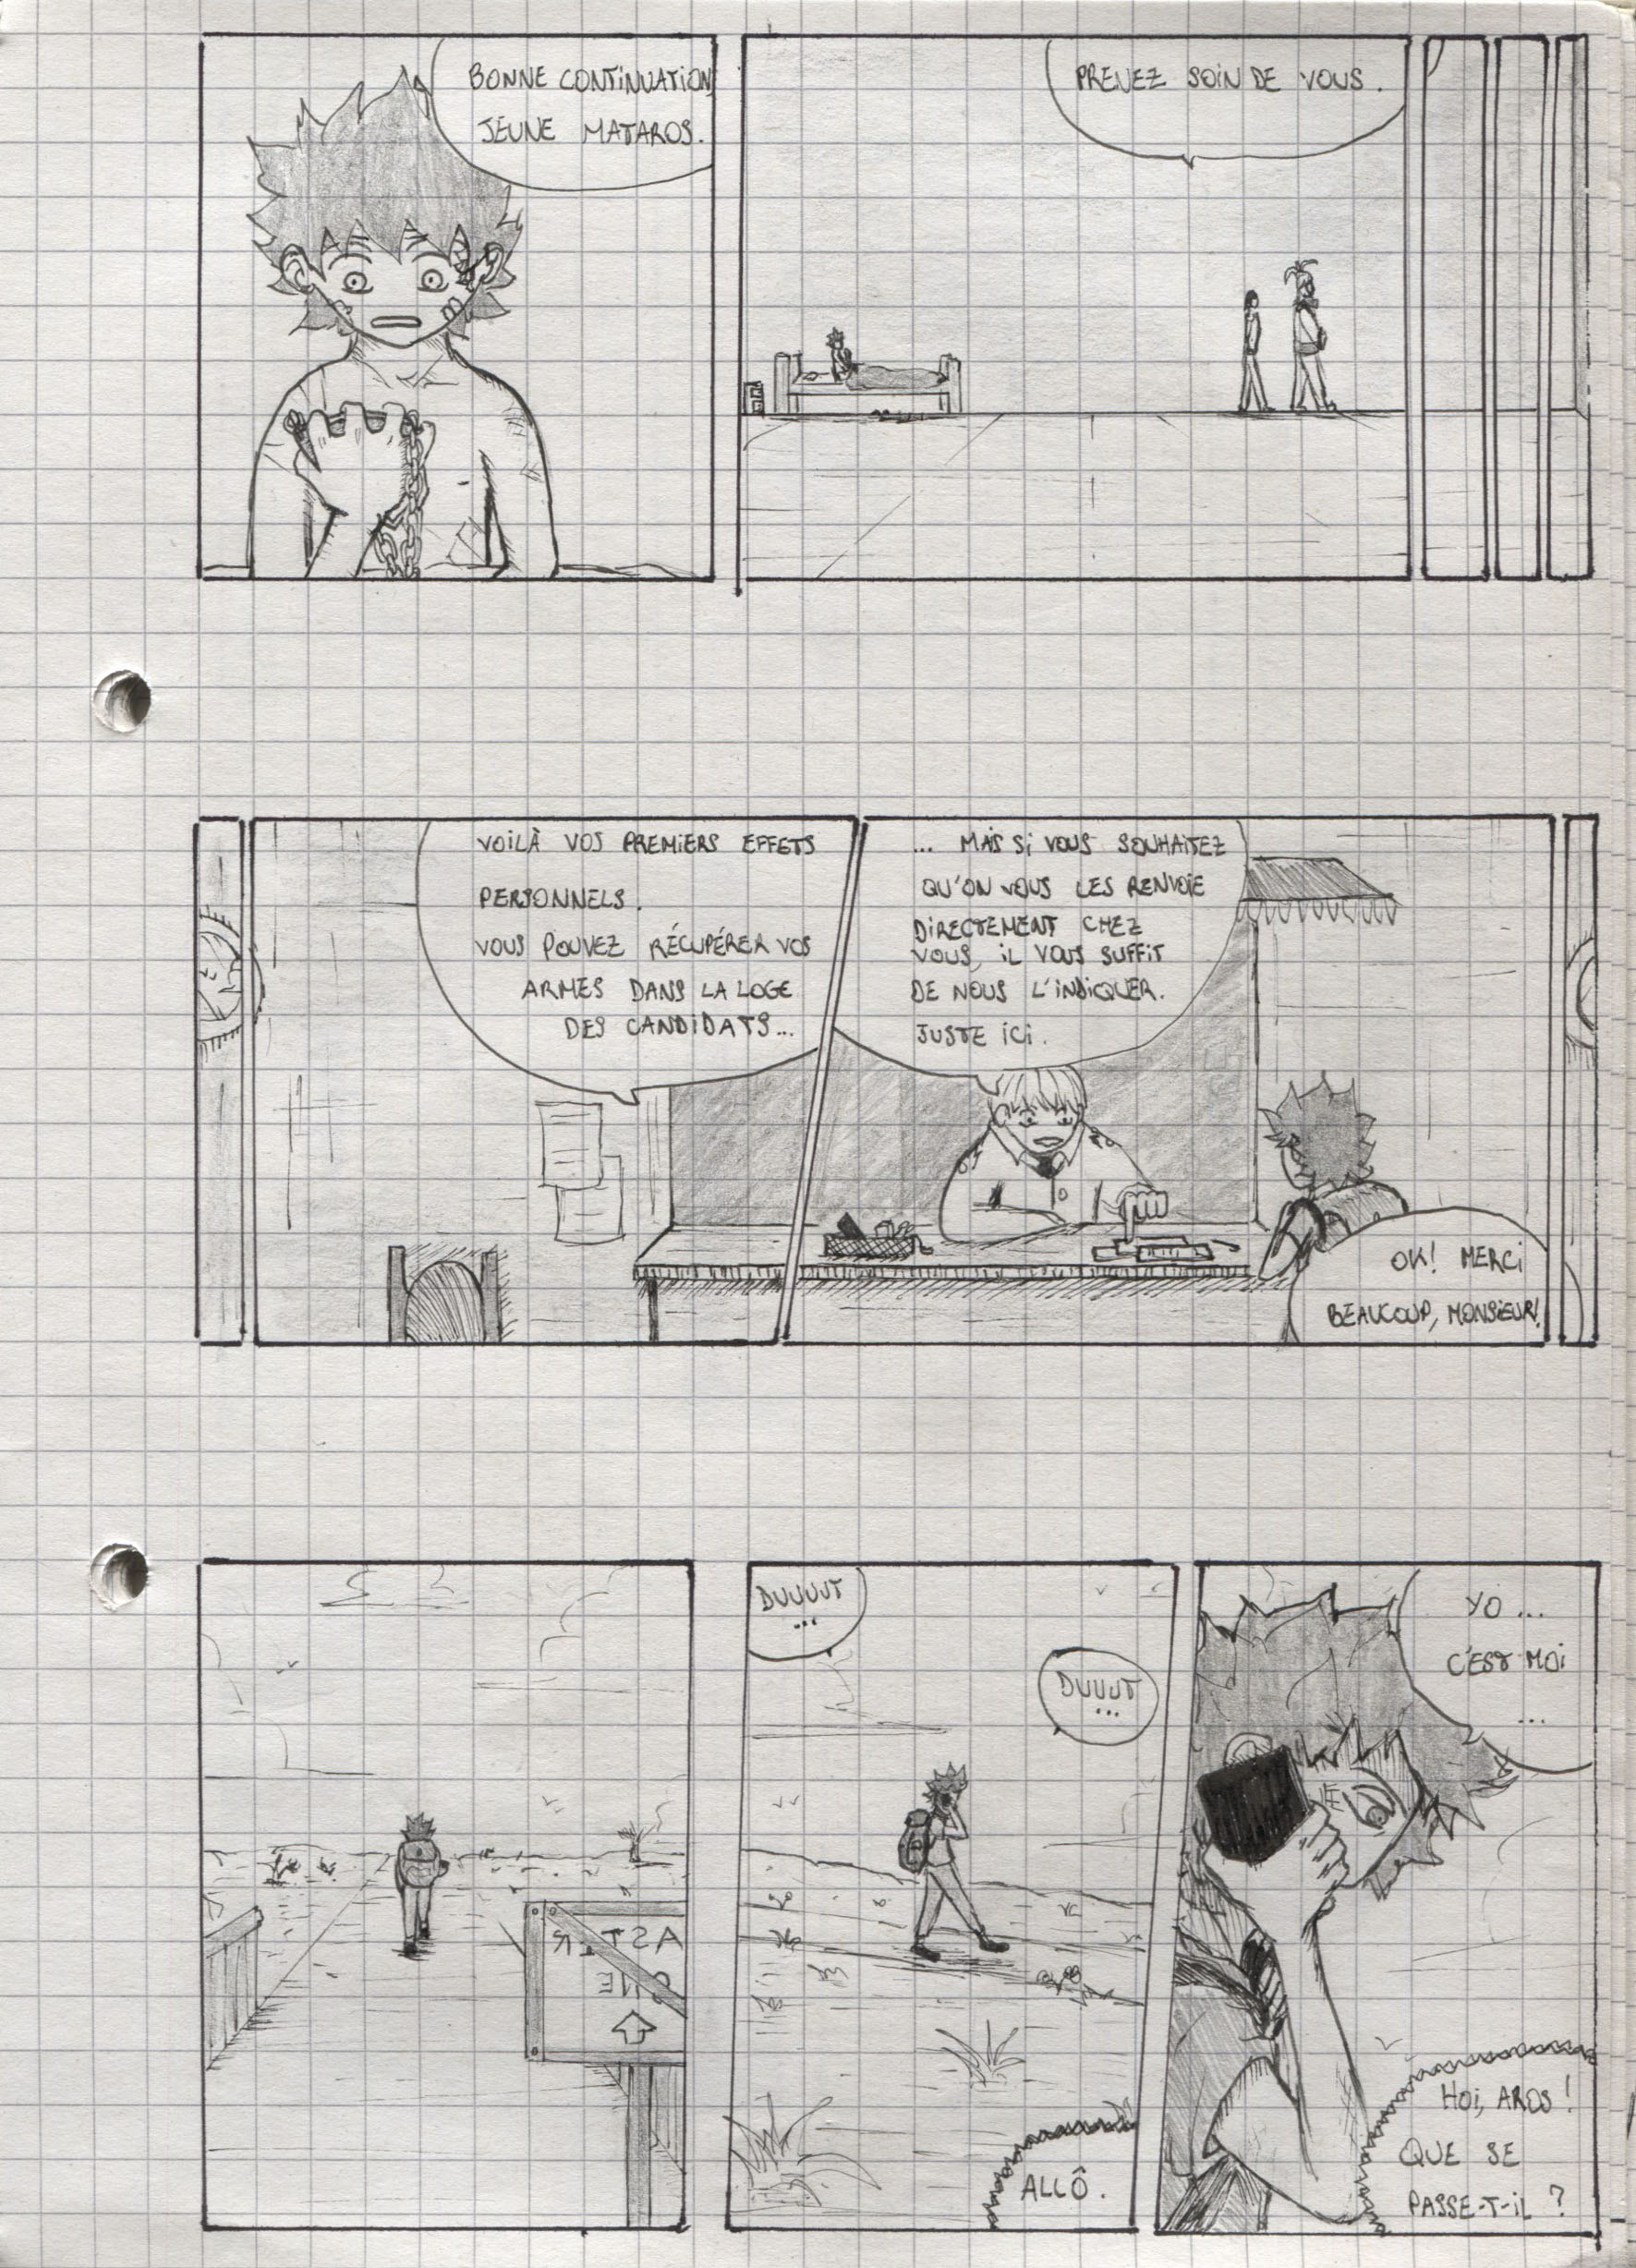 BONNE CONTINUATION,
JEUNE MATAROS.
PRENEZ SOIN DE VOUS.
VOILÀ VOS PREMIERS EFFETS
PERSONNELS.
VOUS POUVEZ RÉCUPÉRER VOS
ARMES DANS LA LOGE
DES CANDIDATS...
... MAIS SI VOUS SOUHAITEZ
QU'ON VOUS LES RENVOIE
DIRECTEMENT CHEZ
VOUS, IL VOUS SUFFIT
DE NOUS L'INDIQUER.
JUSTE ICI.
OK! MERCI
BEAUCOUP, MONSIEUR!
DUUUUT
...
DUUUT
...
ALLÔ.
YO...
C'EST MOI
...
HOI, AROS!
QUE SE
PASSE-T-IL?